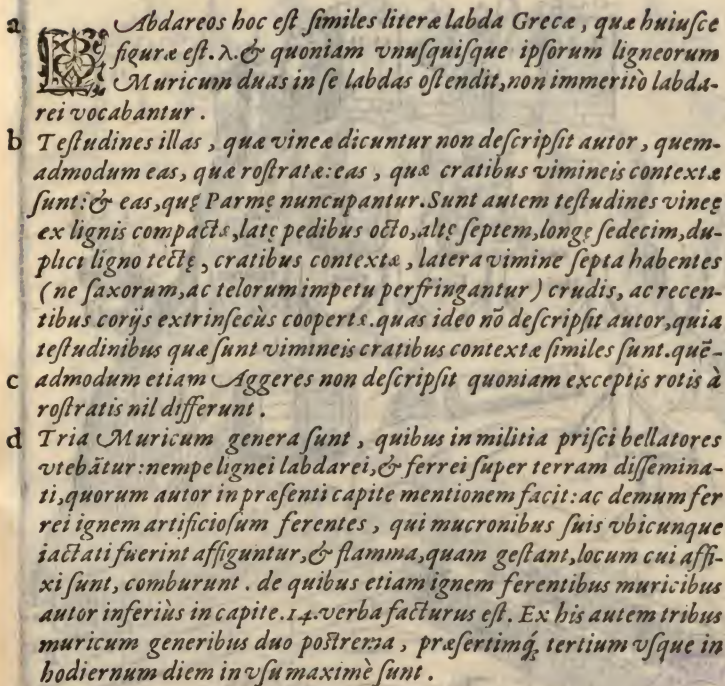 a LAbdareos hoc eſt ſimiles literæ labda Grecæ, quæ huiuſce
figuræ eſt. λ. & quoniam vnuſquiſque ipſorum ligneorum
Muricum duas in ſe labdas oſtendit, non immeritò labda-
rei vocabantur.
b Teſtudines illas, quæ vineæ dicuntur non deſcripſit autor, quem-
admodum eas, quæ roſtratæ: eas, quæ cratibus vimineis contextæ
ſunt: & eas, quę Parmę nuncupantur. Sunt autem teſtudines vineę
ex lignis compactæ, latę pedibus octo, altę ſeptem, longę ſedecim, du-
plici ligno tectę, cratibus contextæ, latera vimine ſepta habentes
(ne ſaxorum, ac telorum impetu perfringantur) crudis, ac recen-
tibus corijs extrinſecùs coopertæ. quas ideo nō deſcripſit autor, quia
teſtudinibus quæ ſunt vimineis cratibus contextæ ſimiles ſunt. quē-
c admodum etiam Aggeres non deſcripſit quoniam exceptis rotis à
roſtratis nil differunt.
d Tria Muricum genera ſunt, quibus in militia priſci bellatores
vtebātur: nempe lignei labdarei, & ferrei ſuper terram diſſemina-
ti, quorum autor in præſenti capite mentionem facit: ac demum fer
rei ignem artificioſum ferentes, qui mucronibus ſuis vbicunque
iactati fuerint affiguntur, & flamma, quam geſtant, locum cui affi-
xi ſunt, comburunt. de quibus etiam ignem ferentibus muricibus
autor inferiùs in capite. 14. verba facturus eſt. Ex his autem tribus
muricum generibus duo poſtrema, præſertimq́; tertium vſque in
hodiernum diem in vſu maximè ſunt.